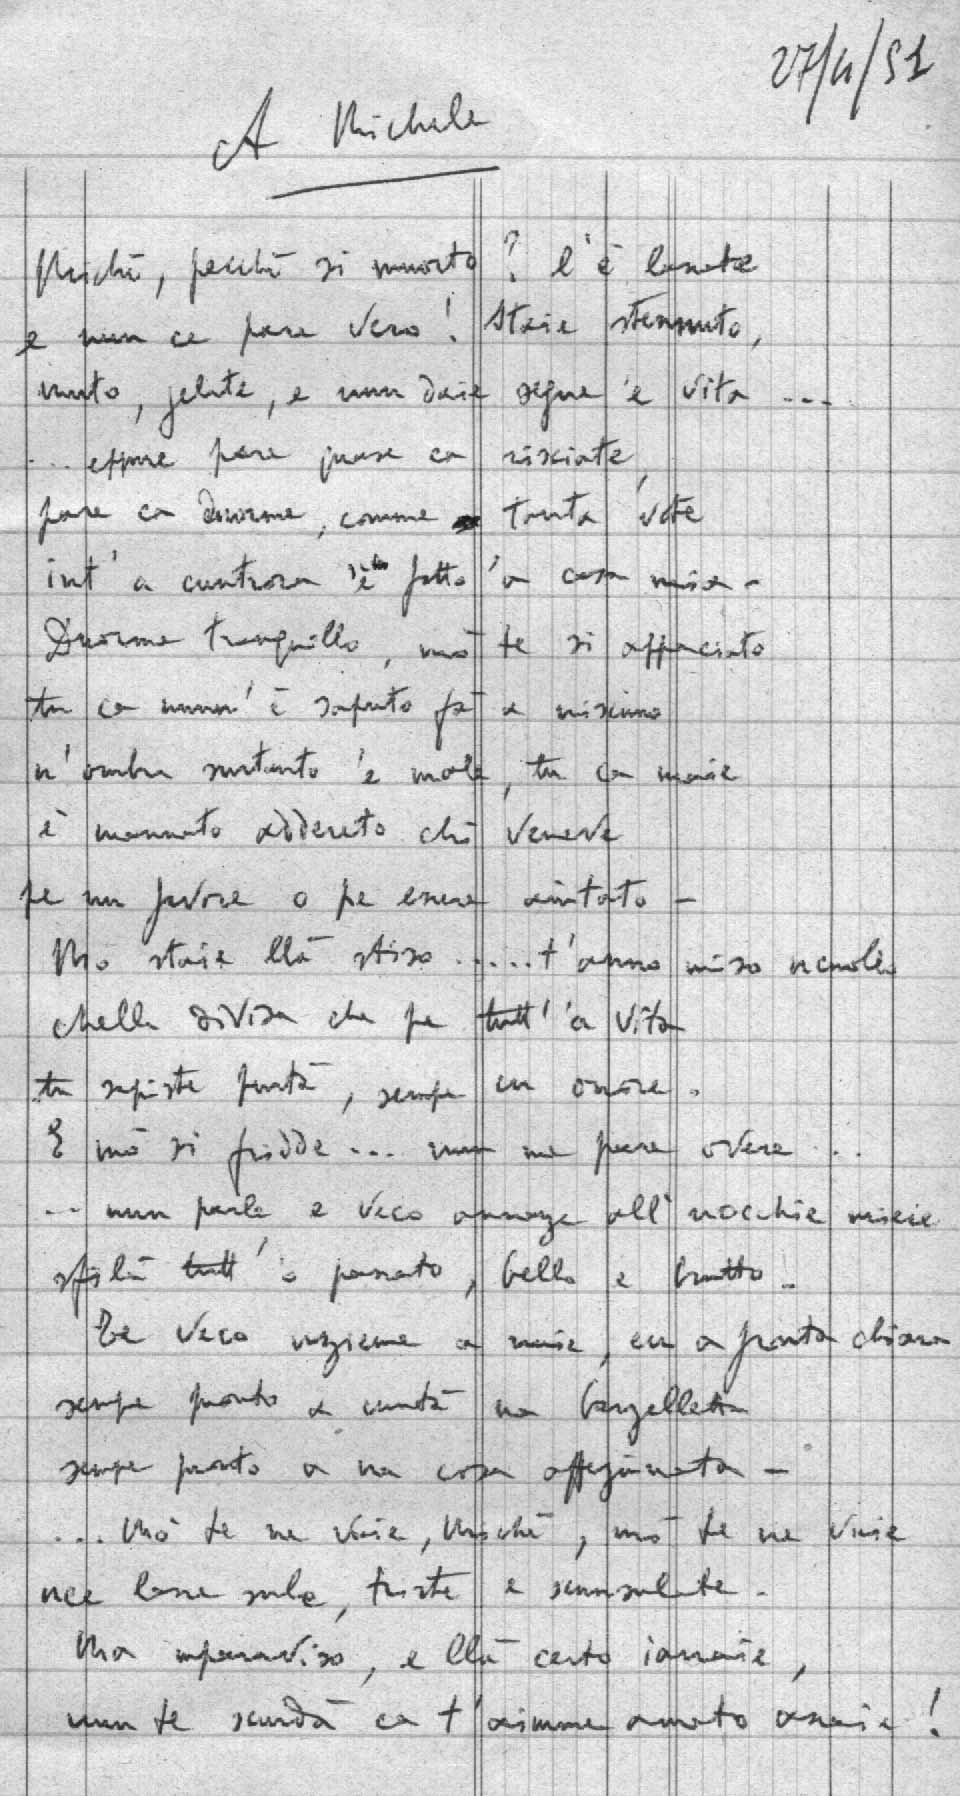 27/4/91
A Michele
Michè, pecchè si muorto? C'è lassate
e nun ce pare vero! Staie stennuto,
muto, jelate, e nun daie segne 'e vita ...
... eppure pare quase ca risciate,
pare ca duorme, comme tanta vote
int' a cuntrora 'è fatto 'a casa mia -
Duorme tranquillo, mò te si appaciato
tu ca nunn' è saputo fà a nisciuno
n'ombra surtanto 'e male, tu ca maie
è mannato addereto chi veneve
pe nu favore o pe essere aiutato -
Mò staie llà stiso ..... t'anno miso ncuollo
chella divisa che pe tutt' 'a vita
tu sapiste purtà, sempe cu onore.
E mò si fridde ... nun me pare overe ..
.. nun parle e veco annanze all'uocchie mieie
sfilà tutt' 'o passato, bello e brutto.
Te veco nzieme a nuie, cu a fronta chiara
sempe pronto a cuntà na barzelletta
sempe pronto a na cosa affezionata -
... Mò te ne vaie, Michè, mò te ne vaie
nce lasse sule, triste e scunsulate.
Ma mparaviso, e llà certo iarraie,
nun te scurdà ca t'aimme amato assaie!